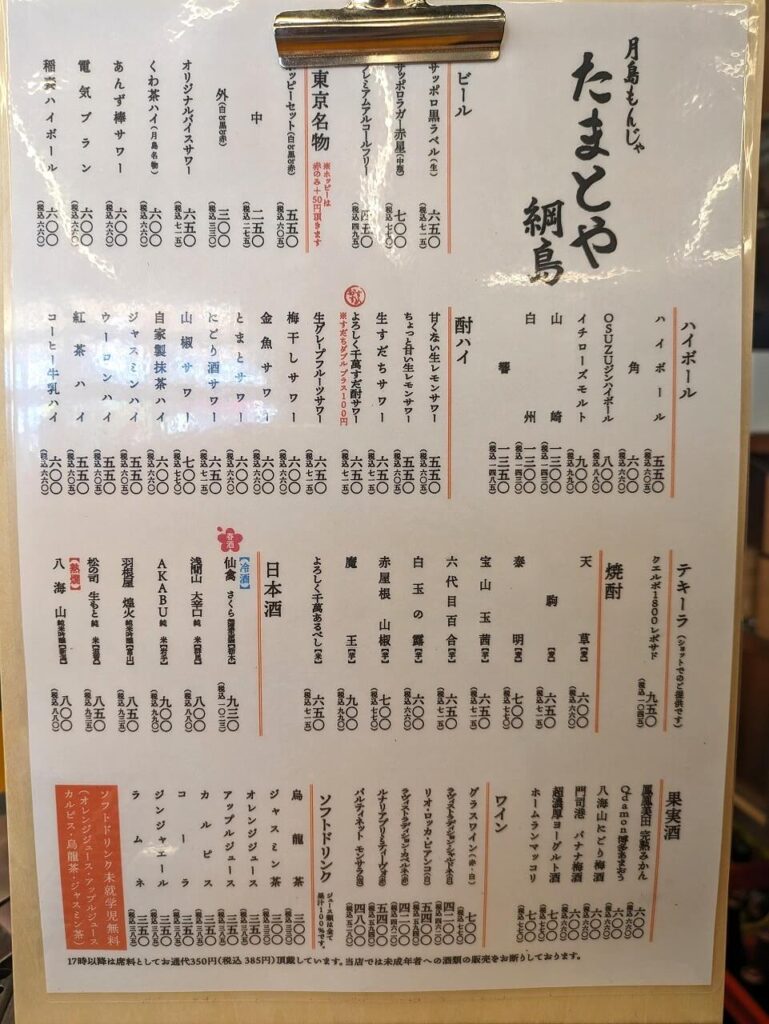 月島もんじゃ
たまとや
綱島
ビール
サッポロ黒ラベル(生) 六五〇 (税込七一五)
サッポロラガー赤星(中瓶) 七〇〇 (税込七七〇)
プレミアムアルコールフリー 四五〇 (税込四九五)
東京名物
※ホッピーは
赤のみ+50円頂きます
ホッピーセット(白or黒or赤) 五五〇 (税込六〇五)
中 二五〇 (税込二七五)
外(白or黒or赤) 三〇〇 (税込三三〇)
オリジナルバイスサワー 六五〇 (税込七一五)
くわ茶ハイ(月島名物) 六〇〇 (税込六六〇)
あんず棒サワー 六〇〇 (税込六六〇)
電気ブラン 六〇〇 (税込六六〇)
稲妻ハイボール 六〇〇 (税込六六〇)
ハイボール
ハイボール 五五〇 (税込六〇五)
角 六〇〇 (税込六六〇)
OSUZUジンハイボール 八〇〇 (税込八八〇)
イチローズモルト 九〇〇 (税込九九〇)
山崎 一三〇〇 (税込一四三〇)
白州 一三〇〇 (税込一四三〇)
響 一三五〇 (税込一四八五)
酎ハイ
甘くない生レモンサワー 五五〇 (税込六〇五)
ちょっと甘い生レモンサワー 五五〇 (税込六〇五)
生すだちサワー 六五〇 (税込七一五)
おすすめ
よろしく千萬すだ酎サワー 六五〇 (税込七一五)
※すだちダブル プラス100円
生グレープフルーツサワー 六五〇 (税込七一五)
梅干しサワー 六〇〇 (税込六六〇)
金魚サワー 六〇〇 (税込六六〇)
とまとサワー 六〇〇 (税込六六〇)
にごり酒サワー 六五〇 (税込七一五)
山椒サワー 七〇〇 (税込七七〇)
自家製抹茶ハイ 六〇〇 (税込六六〇)
ジャスミンハイ 五五〇 (税込六〇五)
ウーロンハイ 五五〇 (税込六〇五)
紅茶ハイ 五五〇 (税込六〇五)
コーヒー牛乳ハイ 六〇〇 (税込六六〇)
テキーラ (ショットでのご提供です)
クエルボ1800 レポサド 九五〇 (税込一〇四五)
焼酎
天草【麦】 六〇〇 (税込六六〇)
駒【麦】 六五〇 (税込七一五)
泰明【麦】 七〇〇 (税込七七〇)
宝山 玉茜【芋】 六五〇 (税込七一五)
六代目百合【芋】 六五〇 (税込七一五)
白玉の露【芋】 六〇〇 (税込六六〇)
赤屋根 山椒【芋】 七〇〇 (税込七七〇)
魔王【芋】 九〇〇 (税込九九〇)
よろしく千萬あるべし【米】 六五〇 (税込七一五)
日本酒
【冷酒】
春酒
仙禽 さくら 九三〇 (税込一〇二三)
浅間山 大辛口 純米【群馬】 八〇〇 (税込八八〇)
AKABU 純米【岩手】 九〇〇 (税込九九〇)
羽根屋 煌火 純米吟醸【富山】 八五〇 (税込九三五)
松の司 生もと 純米【滋賀】 八五〇 (税込九三五)
【熱燗】
八海山 純米吟醸【新潟】 八〇〇 (税込八八〇)
果実酒
鳳凰美田 完熟みかん 六〇〇 (税込六六〇)
Qdamon博多あまおう 六〇〇 (税込六六〇)
八海山にごり梅酒 六〇〇 (税込六六〇)
門司港 バナナ梅酒 六〇〇 (税込六六〇)
超濃厚ヨーグルト酒 七〇〇 (税込七七〇)
ホームランマッコリ 七〇〇 (税込七七〇)
ワイン
グラスワイン(赤・白) 七〇〇 (税込七七〇)
ラヴィストラディション・シャルドネ(白) 四二〇〇 (税込四六二〇)
リオ・ロッカ・ビアンコ(白) 五四〇〇 (税込五九四〇)
ラヴィストラディション・カベルネ(赤) 四二〇〇 (税込四六二〇)
ルナリアプリミティーヴォ(赤) 五四〇〇 (税込五九四〇)
バルディネット モンサラ(泡) 四八〇〇 (税込五二八〇)
ソフトドリンク
ジュース類は全て
果汁100%です。
烏龍茶 三〇〇 (税込三三〇)
ジャスミン茶 三〇〇 (税込三三〇)
オレンジジュース 三五〇 (税込三八五)
アップルジュース 三五〇 (税込三八五)
カルピス 三五〇 (税込三八五)
コーラ 三五〇 (税込三八五)
ジンジャエール 三五〇 (税込三八五)
ラムネ 三五〇 (税込三八五)
ソフトドリンク未就学児無料
(オレンジジュース・アップルジュース
カルピス・烏龍茶・ジャスミン茶)
17時以降は席料としてお通代350円(税込 385円)頂戴しています。当店では未成年者への酒類の販売をお断りしております。